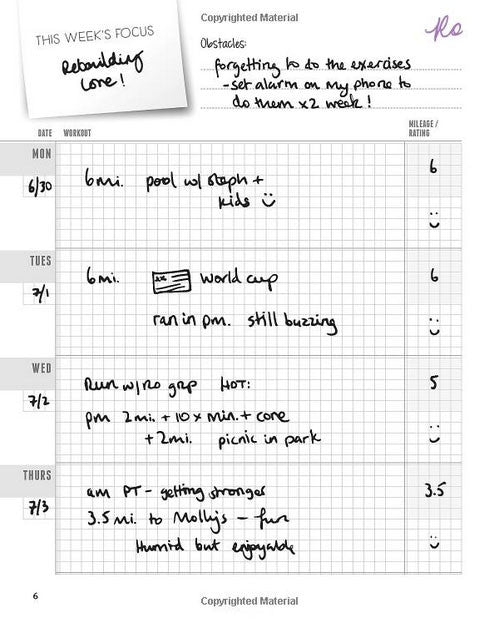 Copyrighted Material
Ro
THIS WEEK'S FOCUS
Rebuilding
Core!
Obstacles:
forgetting to do the exercises
- set alarm on my phone to
do them x2 week!
DATE WORKOUT MILEAGE / RATING
MON
6/30
6mi. pool w/ Steph +
kids :)
6
:)
TUES
7/1
6mi. world cup
ran in pm. still buzzing
6
:)
WED
7/2
Run w/Ro grp HOT:
pm 2mi. + 10 x min. + core
+ 2mi. picnic in park
5
:)
THURS
7/3
am PT - getting stronger
3.5 mi. to Molly's - fun
Humid but enjoyable
3.5
:)
6
Copyrighted Material